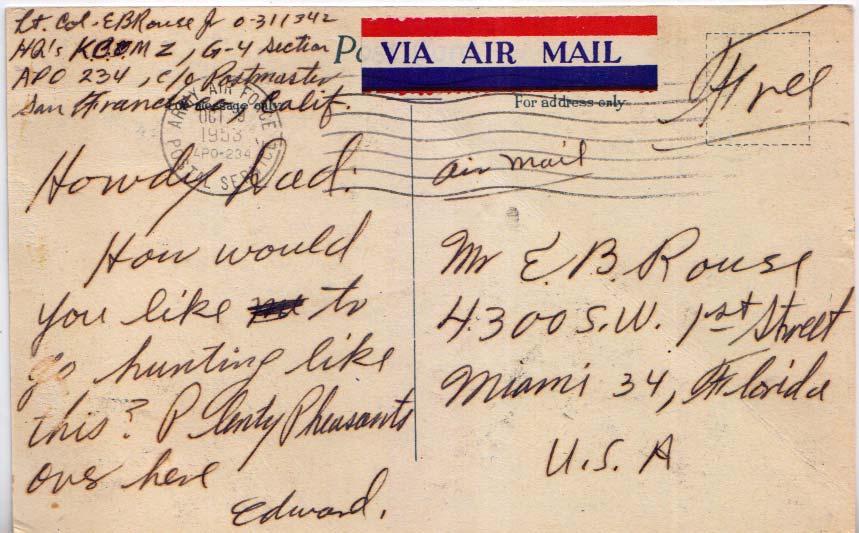 Lt. Col. E B Rouse Jr 0-311342
HQ's KCOMZ, G-4 Section
APO 234, c/o Postmaster
San Francisco, Calif.
VIA AIR MAIL
For message only
For address only
Free
ARMY AIR FORCE
OCT
1953
APO-234
POSTAL SERV
air mail
Howdy Dad:
How would
you like to
go hunting like
this? Plenty Pheasants
over here
Edward.
Mr E. B. Rouse
4300 S.W. 1st Street
Miami 34, Florida
U.S.A